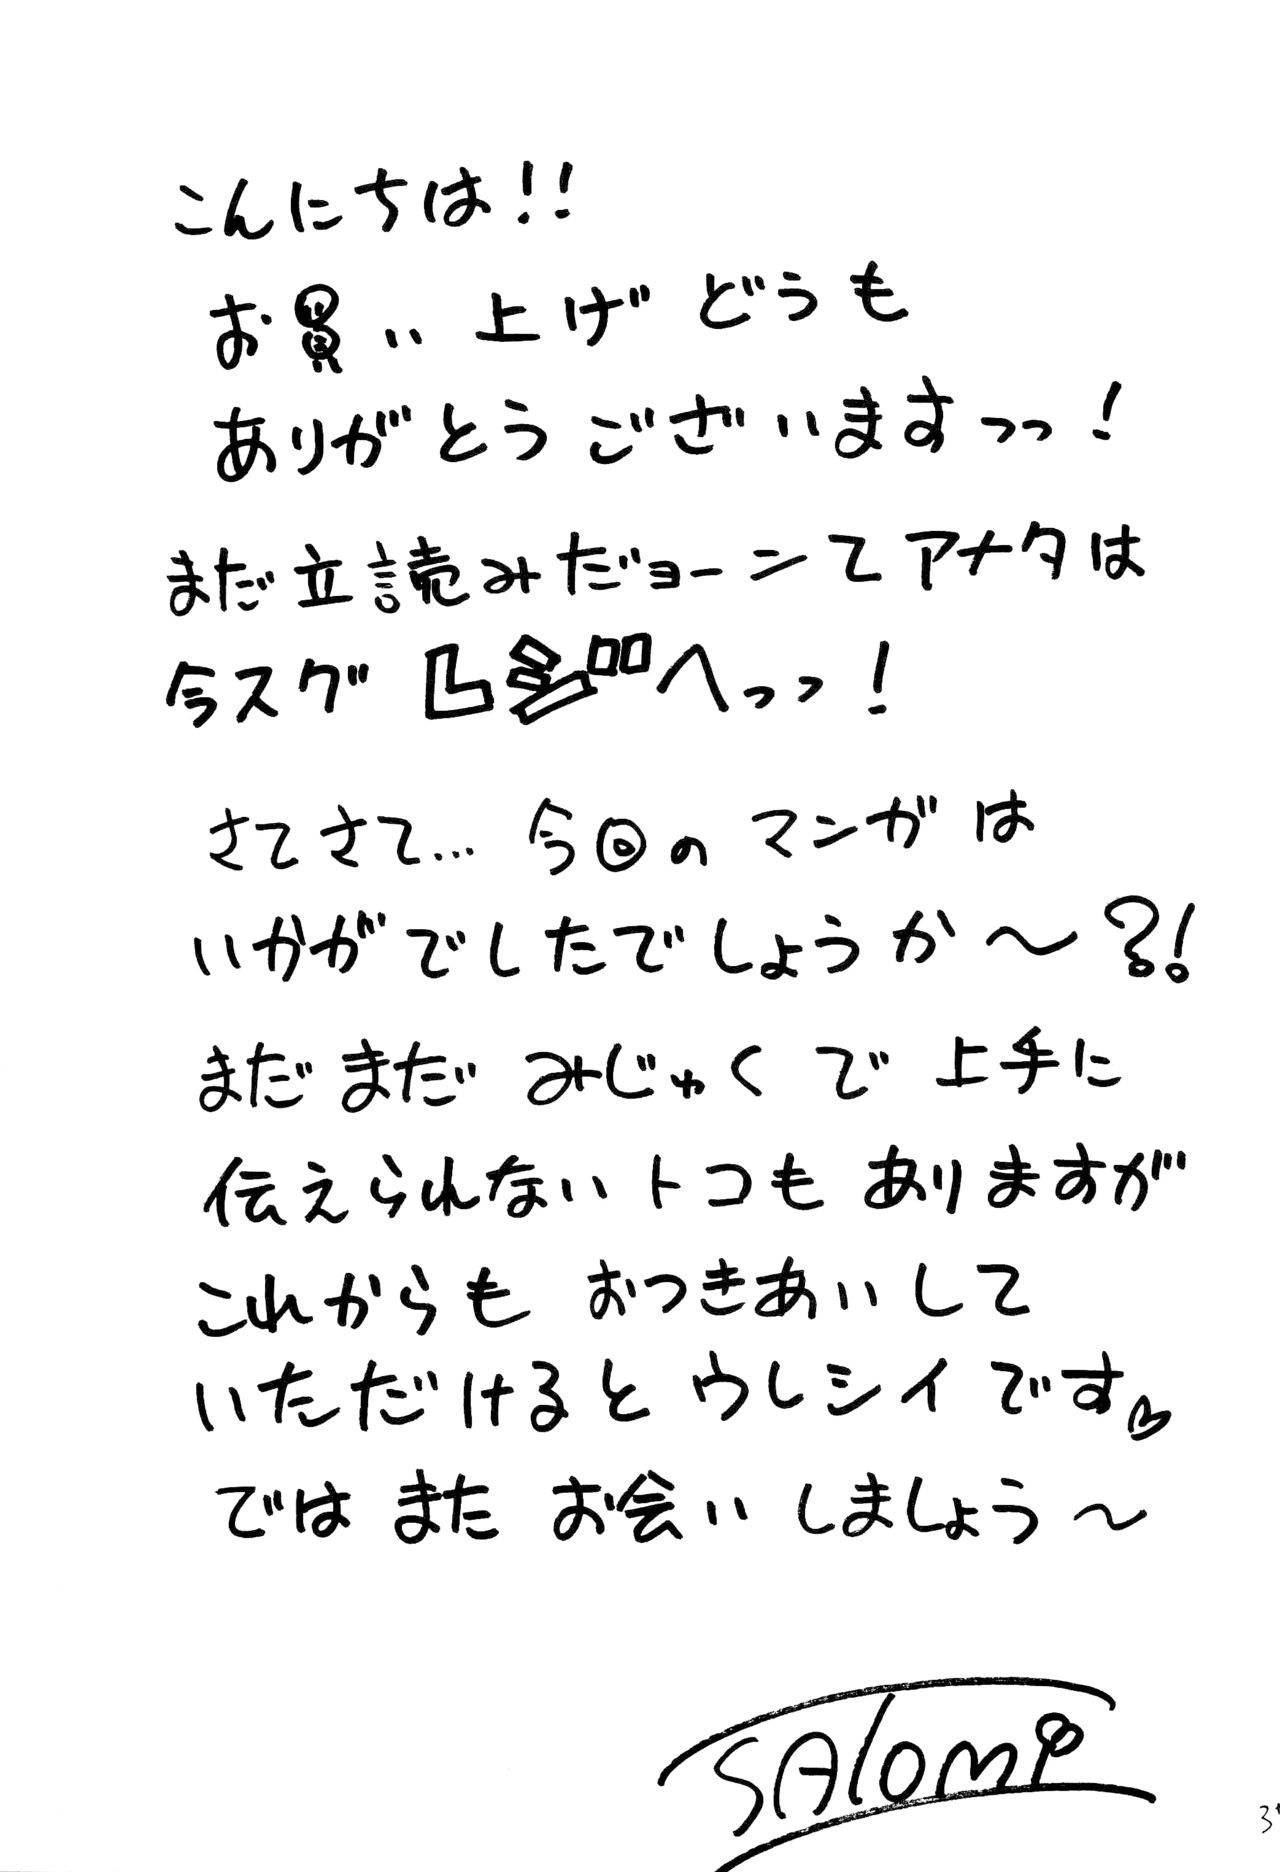 こんにちは!!
お買い上げどうも
ありがとうございますっっ!
まだ立読みだョーンてアナタは
今スグレジへっっ!
さてさて… 今回のマンガは
いかがでしたでしょうか〜?!
まだまだみじゅくで上手に
伝えられないトコもありますが
これからもおつきあいして
いただけるとウレシイです♡
ではまたお会いしましょう〜
SAlOMi